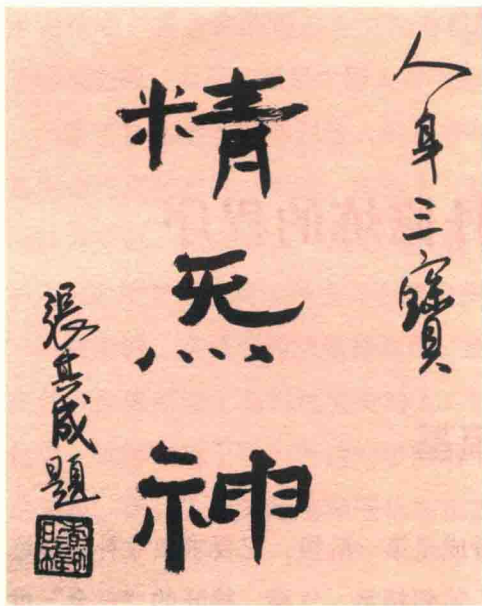 人身三寶
精炁神
張其成題